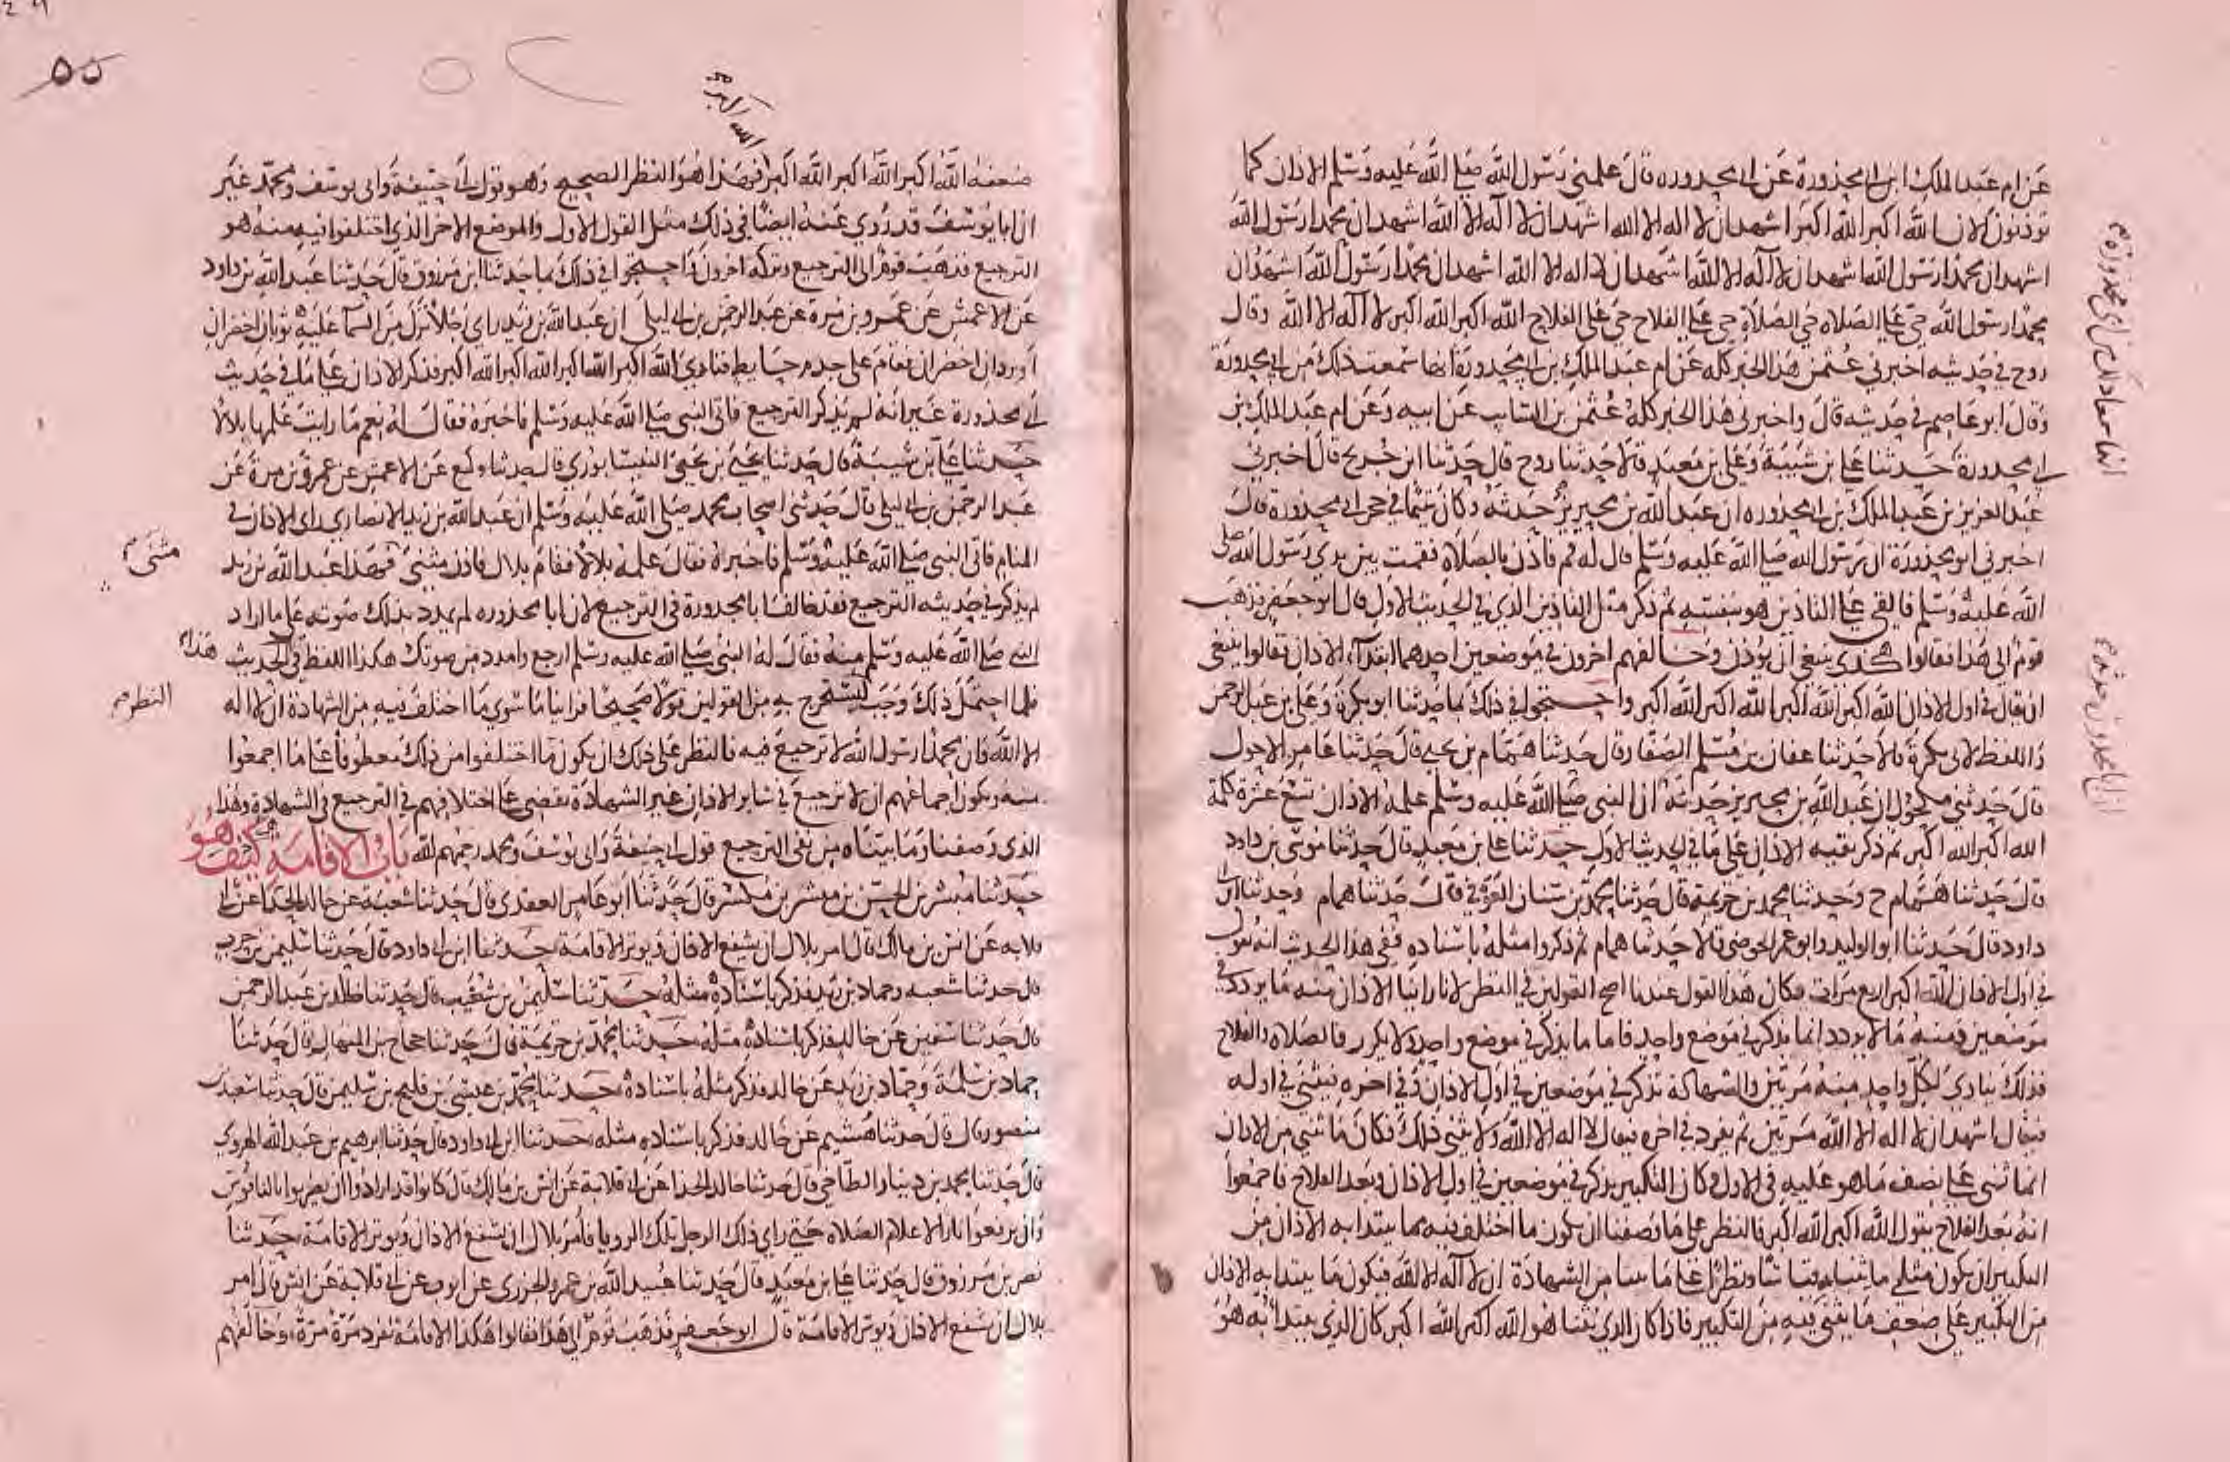 عن ام عبد الملك ابن ابي محذورة عن ابي محذوره قال علمني رسول الله صلى الله عليه وسلم الاذان كما
توذنون الان الله اكبر الله اكبر اشهد ان لا اله الا الله اشهد ان لا اله الا الله اشهد ان محمدا رسول الله
اشهد ان محمدا رسول الله اشهد ان لا اله الا الله اشهد ان لا اله الا الله اشهد ان محمدا رسول الله اشهد ان
محمدا رسول الله حي على الصلاه حي على الصلاة حي على الفلاح حي على الفلاح الله اكبر الله اكبر لا اله الا الله وقال
روح في حديثه اخبرني عثمن هذا الخبر كله عن ام عبد الملك بن ابي محذورة انها سمعت ذلك من ابي محذورة
وقال ابو عاصم في حديثه قال واخبرني هذا الخبر كله عثمن بن السايب عن ابيه وعن ام عبد الملك بن
ابي محذورة حدثنا علي بن شيبة وعلي بن معبد قالا حدثنا روح قال حدثنا ابن جريج قال اخبرني
عبد العزيز بن عبد الملك بن ابي محذوره ان عبد الله بن محيريز حدثه وكان يتيما في حجر ابي محذوره قال
اخبرني ابو محذورة ان رسول الله صلى الله عليه وسلم قال له قم فاذن بالصلاة فقمت بين يدي رسول الله صلى
الله عليه وسلم فالقى علي التاذين هو بنفسه ثم ذكر مثل التاذين الذي في الحديث الاول قال ابو جعفر فذهب
قوم الى هذا فقالوا هكذى ينبغي ان يوذن وخالفهم اخرون في موضعين احدهما ابتدآء الاذان فقالوا ينبغي
ان يقال في اول الاذان الله اكبر الله اكبر الله اكبر الله اكبر واحتجوا في ذلك بما حدثنا ابو بكرة وعلي بن عبد الرحمن
واللفظ لابي بكرة قالا حدثنا عفان بن مسلم الصفار قال حدثنا همام بن يحيى قال حدثنا عامر الاحول
قال حدثني مكحول ان عبد الله بن محيريز حدثه ان النبي صلى الله عليه وسلم علمه الاذان تسع عشرة كلمة
الله اكبر الله اكبر ثم ذكر بقيه الاذان على ما في الحديث الاول حدثنا علي بن معبد قال حدثنا موسى بن داود
قال حدثنا همام ح وحدثنا محمد بن خزيمة قال حدثنا محمد بن سنان العوقي قال حدثنا همام وحدثنا ابن ابي
داود قال حدثنا ابو الوليد وابو عمر الحوضي قالا حدثنا همام ثم ذكروا مثله باسناده ففي هذا الحديث انه يقول
في اول الاذان الله اكبر اربع مرات فكان هذا القول عندنا اصح القولين في النظر لانا راينا الاذان منه ما يردد في
موضعين ومنه ما لا يردد انما يذكر في موضع واحد فاما ما يذكر في موضع واحد ولا يكرر فالصلاه والفلاح
فذلك ينادى لكل واحد منه مرتين والشهادة تذكر في موضعين في اول الاذان وفي اخره فيثنى في اوله
فيقال اشهد ان لا اله الا الله مرتين ثم يفرد في اخره فيقال لا اله الا الله ولا يثنى ذلك فكان ما ثني من الاذان
انما ثني على نصف ما هو عليه في الاول وكان التكبير يذكر في موضعين في اول الاذان وبعد الفلاح فاجمعوا
انه بعد الفلاح يقول الله اكبر الله اكبر فالنظر على ما وصفنا ان يكون ما اختلف فيه مما يبتدا به الاذان من
التكبير ان يكون مثلي ما يثنى به قياسا ونظرا على ما بينا من الشهادة ان لا اله الا الله فيكون ما يبتدا به الاذان
من التكبير على ضعف ما يثنى فيه من التكبير فاذا كان الذي يثنا هو الله اكبر الله اكبر كان الذي يبتدا به هو
٥٥
الله اكبر
ضعفه الله اكبر الله اكبر الله اكبر فهذا هو النظر الصحيح وهو قول ابي حنيفة وابي يوسف ومحمد غير
ان ابا يوسف قد روي عنه ايضا في ذلك مثل القول الاول والموضع الاخر الذي اختلفوا فيه منه هو
الترجيع فذهب قوم الى الترجيع وتركه اخرون واحتجوا في ذلك بما حدثنا ابن مرزوق قال حدثنا عبد الله بن داود
عن الاعمش عن عمرو بن مرة عن عبد الرحمن بن ابي ليلى ان عبد الله بن زيد راى رجلا نزل من السمآ عليه ثوبان اخضران
او بردان اخضران فقام على جذم حايط فنادى الله اكبر الله اكبر الله اكبر الله اكبر فذكر الاذان على ما في حديث
ابي محذورة غير انه لم يذكر الترجيع فاتى النبي صلى الله عليه وسلم فاخبره فقال له نعم ما رايت علمها بلالا
حدثنا علي بن شيبة قال حدثنا يحيى بن يحيى النيسابوري قال حدثنا وكيع عن الاعمش عن عمرو بن مرة عن
عبد الرحمن بن ابي ليلى قال حدثني اصحاب محمد صلى الله عليه وسلم ان عبد الله بن زيد الانصاري راى الاذان في
المنام فاتى النبي صلى الله عليه وسلم فاخبره فقال علمه بلالا فقام بلال فاذن مثنى فهذا عبد الله بن زيد
مثنى
لم يذكر في حديثه الترجيع فقد خالف ابا محذورة في الترجيع لان ابا محذوره لم يمدد بذلك صوته على ما اراد
النبي صلى الله عليه وسلم منه فقال له النبي صلى الله عليه وسلم ارجع وامدد من صوتك هكذا اللفظ في الحديث
هذا
فلما احتمل ذلك وجب لنستخرج به من القولين قولا صحيحا فراينا ما سوى ما اختلف فيه من الشهادة ان لا اله
النظر
الا الله وان محمدا رسول الله لا ترجيع فيه فالنظر على ذلك ان يكون ما اختلفوا من ذلك معطوفا على ما اجمعوا
منه ويكون اجماعهم ان لا ترجيع في ساير الاذان غير الشهادة يقضي على اختلافهم في الترجيع في الشهادة وهذا
الذي وصفنا وما بيناه من نفي الترجيع قول ابي حنيفة وابي يوسف ومحمد رحمهم الله باب الاقامة كيف هو
حدثنا مبشر بن الحسن بن مبشر بن مكسر قال حدثنا ابو عامر العقدي قال حدثنا شعبة عن خالد الحذا عن ابي
قلابه عن انس بن مالك قال امر بلال ان يشفع الاذان ويوتر الاقامة حدثنا ابن ابي داود قال حدثنا سليمن بن حرب
قال حدثنا شعبه وحماد بن زيد فذكر باسناده مثله حدثنا سليمن بن شعيب قال حدثنا خالد بن عبد الرحمن
قال حدثنا سفين عن خالد فذكر باسناده مثله حدثنا محمد بن خزيمة قال حدثنا حجاج بن المنهال قال حدثنا
حماد بن سلمة وحماد بن زيد عن خالد فذكر مثله باسناده حدثنا محمد بن عيسى بن فليح بن سليمن قال حدثنا سعيد بن
منصور قال حدثنا هشيم عن خالد فذكر باسناده مثله حدثنا ابن ابي داود قال حدثنا ابرهيم بن عبد الله الهروي
قال حدثنا محمد بن دينار الطاحي قال حدثنا خالد الحذا عن ابي قلابة عن انس بن مالك قال كانوا قد ارادوا ان يضربوا بالناقوس
وان يرفعوا نارا لاعلام الصلاه حتى راى ذلك الرجل تلك الرويا فامر بلال ان يشفع الاذان ويوتر الاقامة حدثنا
نصر بن مرزوق قال حدثنا علي بن معبد قال حدثنا عبيد الله بن عمرو الجزري عن ايوب عن ابي قلابة عن انس قال امر
بلال ان يشفع الاذان ويوتر الاقامة قال ابو جعفر فذهب قوم الى هذا فقالوا هكذا الاقامة تفرد مرة مرة وخالفهم